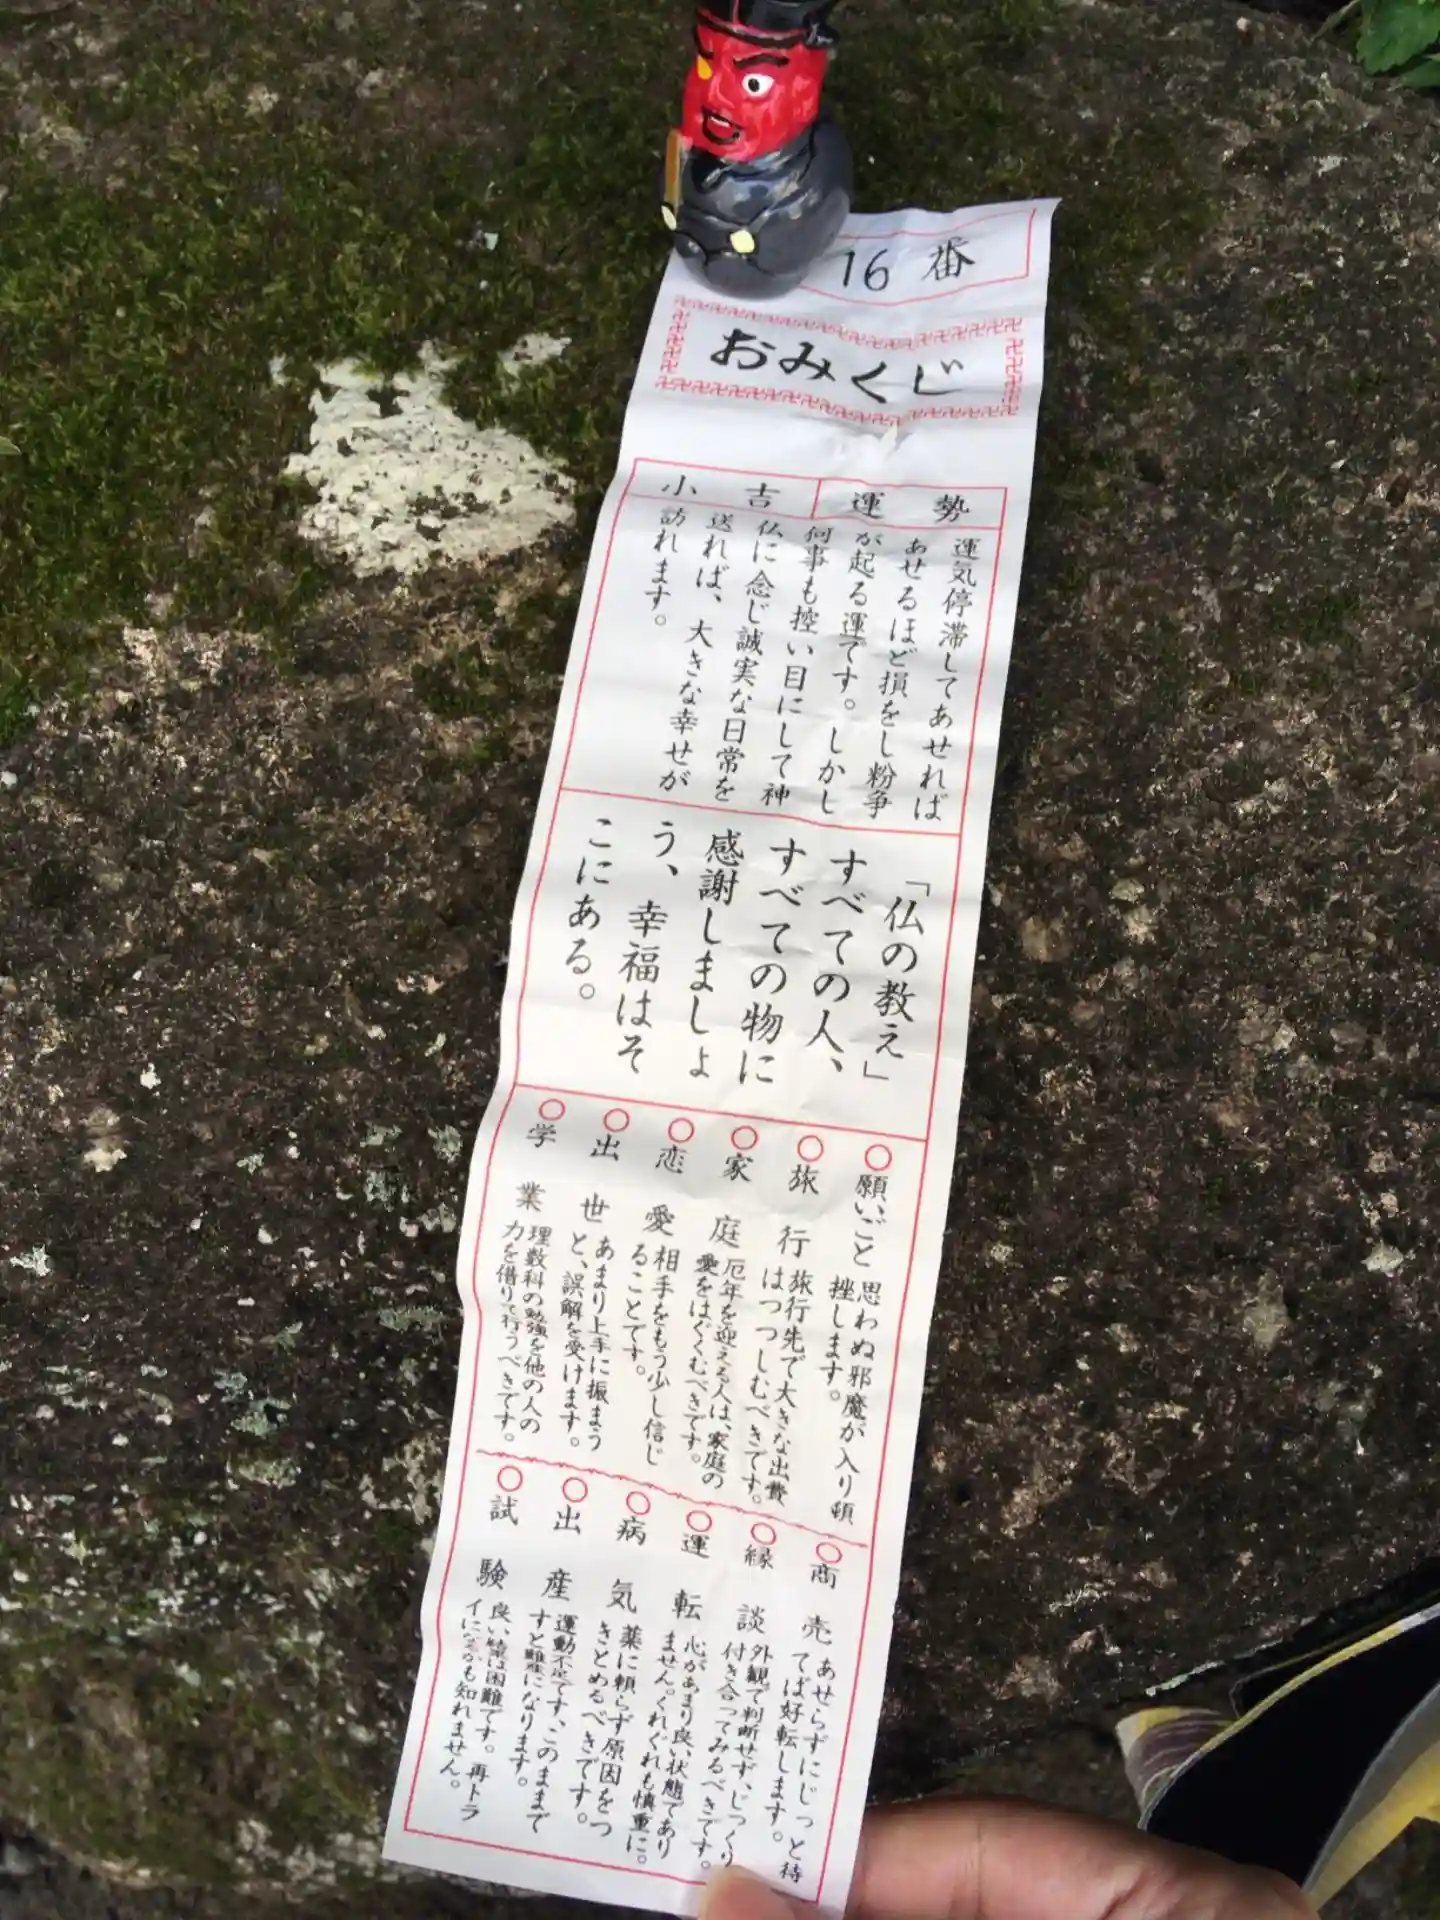 16番
おみくじ
運勢
小吉
運気停滞してあせれば
あせるほど損をし粉争
が起る運です。しかし
何事も控い目にして神
仏に念じ誠実な日常を
送れば、大きな幸せが
訪れます。
「仏の教え」
すべての人、
すべての物に
感謝しましょ
う、幸福はそ
こにある。
○願いごと
思わぬ邪魔が入り頓
挫します。
○旅行
旅行先で大きな出費
はつつしむべきです。
○家庭
厄年を迎える人は、家庭の
愛をはぐくむべきです。
○恋愛
相手をもう少し信じ
ることです。
○出世
あまり上手に振まう
と、誤解を受けます。
○学業
理数科の勉強を他の人の
力を借りて行うべきです。
○商売
あせらずにじっと待
てば好転します。
○縁談
外観で判断せず、じっくり
付き合ってみるべきです。
○運転
心があまり良い状態であり
ません。くれぐれも慎重に。
○病気
薬に頼らず原因をつ
きとめるべきです。
○出産
運動不足です、このままで
すと難になります。
○試験
良い績は困難です。再トラ
イになるかも知れません。